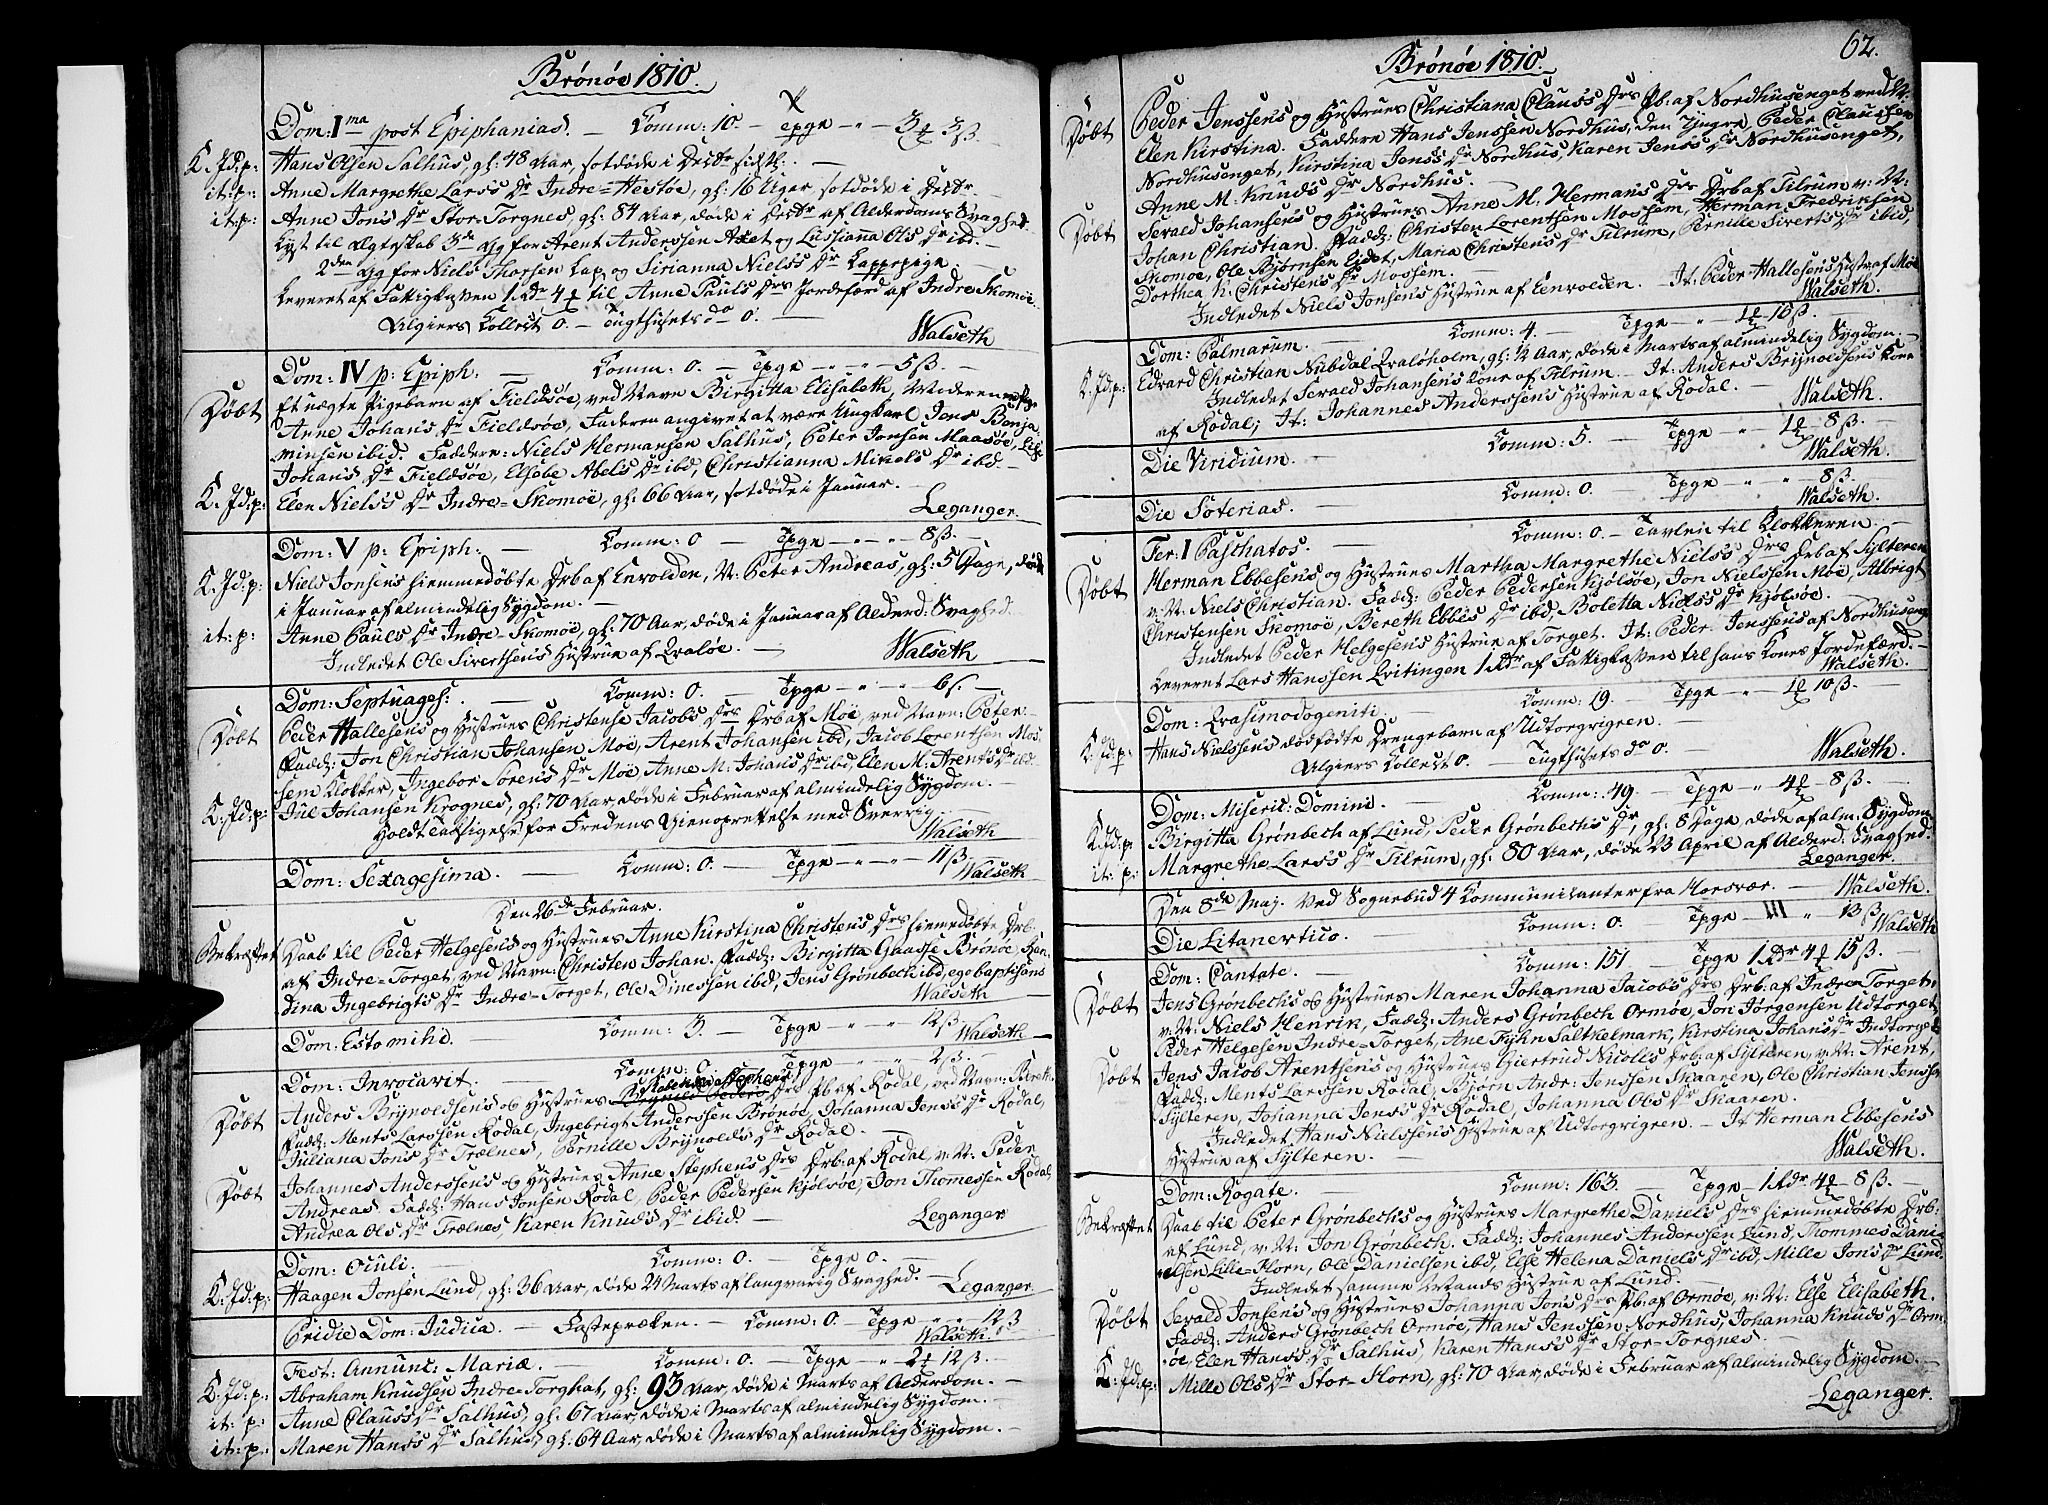 Brönöe 1810.
Dom: I ma post Epiphanias. — Comm: 10. — Tpge " " 3 3ß.
K. Jd: p: Hans Olsen Salhus, gl: 48 Aar, sotdöde i Decbr sidstl: —
it: p: Anne Margrethe Larsd Dr Indre-Hestöe, gl: 16 Uger sotdöde i Decbr. —
it: p: Anne Jons Dr Stor-Torgnes, gl: 84 Aar, döde i Decbr af Alderdoms Svaghed.
Lyst til Ægteskab 3de Gg for Arent Anderssen Axet og Lussianna Ols Dr ibd. —
2den Gg for Niels Thorsen Lap og Sirianna Nielss Dr Lappepige. —
Leveret af Fattigkassen 1 Rdr 4 til Anne Pauls Drs Jordefærd af Indre Skomöe.
Algiers Collect 0. — Tugthusets do 0. — Walseth
Dom: IV p: Epiph. — Comm: 0. — Tpge " " 5ß. —
Döbt Et uægte Pigebarn af Fieldsöe, ved Navn Birgitta Elisabeth, Moderen Pige
Anne Johans Dr Fieldsöe, Faderen angivet at være Ungkarl Jens Benja
minsen ibid. Faddere: Niels Hermansen Salhus, Peter Jonsen Maasöe, Lise
Johans Dr Fieldsöe, Elsebe Abels Dr ibd, Christianna Mikels Dr ibd. —
K. Jd: p: Elen Nielss Dr Indre-Skomöe, gl: 66 Aar, sotdöde i Januar. — Leganger.
Dom: V p: Epiph: — Comm: 0 — Tpge — " " 8ß. —
K. Jd: p: Niels Jonsens hiemmedöbte Drb af Envolden, N: Peter Andreas, gl: 5 Dage, döde
i Januar af almindelig Sygdom. —
it: p: Anne Pauls Dr Indre-Skomöe, gl: 70 Aar, döde i Januar af Alderd: Svaghed.
Indledet Ole Sivertsens Hustrue af Qvalöe. — Walseth
Dom: Septuages: — Comm: 0. — Tpge — " " 6ß. —
Döbt Peder Hallesens og Hustrues Christense Jacobs Drs Drb af Möe, ved Navn: Peter
Fadd: Jon Christian Johansen Möe, Arent Johansen ibd, Jacob Lorentsen Mos
sem Klokker, Ingebor Sörens Dr Möe, Anne M. Johans Dr ibd, Elen M. Arents Dr ibd. —
K: Jd: p: Jul Johansen Krognes, gl: 70 Aar, döde i Februar af almindelig Sygdom.
Holdt Taksigelse for Fredens Gienoprettelse med Sverrig. Walseth
Dom: Sexagesima. — Comm: 0. — Tpge — " " 11ß. Walseth
Den 26de Februar.
Bekræftet Daab til Peder Helgesens og Hustrues Anne Kirstina Christens Drs hiemmedöbte Drb.
af Indre-Torget, ved Navn: Christen Johan. Fadd: Birgitta Gaasse Brönöe, Kan
dina Ingebrigts Dr Indre-Torget, Ole Dinessen ibd, Jens Grönbech ibd, ego baptisans
Walseth
Dom: Esto mihi. — Comm: 3. — Tpge — " " 12ß. Walseth
Dom: Invocavit. — Comm: 0. — Tpge " " 2ß. —
Döbt Anders Brynoldsens og Hustrues Stephens Drs Pb af Rodal, ved Navn: Bereth.
Fadd: Ments Larssen Rodal, Ingebrigt Anderssen Brönöe, Johanna Jens Dr Rodal,
Juliana Jons Dr Trælnes, Pernille Brynolds Dr Rodal. —
Döbt Johannes Anderssens og Hustrues Anne Stephens Drs Drb: af Rodal, v: N: Peder
Andreas. Fadd: Hans Jonsen Rodal, Peder Pedersen Kjölsöe, Jon Thomessen Rodal
Andrea Ols Dr Trælnes, Karen Knuds Dr ibid. — Leganger
Dom: Oculi. — Comm: 0. — Tpge 0. —
K: Jd: p: Haagen Jonsen Lund, gl: 36 Aar, döde 24 Marts af langvarig Svaghed. — Leganger
Pridie Dom: Judica. — Fastepræken. — Comm: 0. — Tpge " " 12ß
Walseth.
Fest: Annunc: Mariæ. — Comm: 0. — Tpge — " 2 12ß. —
K: Jd: p: Abraham Knudsen Indre-Torghat, gl: 93 Aar, döde i Marts af Alderdom. —
it: p: Anne Clauss Dr Salhus, gl: 67 Aar, döde i Marts af almindelig Sygdom. —
it: p: Maren Hanss Dr Salhus, gl: 64 Aar, döde i Marts af almindelig Sygdom. —
Brönöe 1810. 62.
Döbt Peder Jenssens og Hustrues Christiana Clauss Drs Pb. af Nordhusenget ved N.
Elen Kirstina. Faddere Hans Jenssen Nordhus, den Yngre, Peder Claussen
Nordhusenget, Kirstina Jenss Dr Nordhus, Karen Jenss Dr Nordhusenget,
Anne M. Knuds Dr Nordhus. —
Döbt Serald Johansens og Hustrues Anne M. Hermans Drs Drb af Tilrum v: N:
Johan Christian. Fadd: Christen Lorentsen Mossem, Herman Fredriksen
Skomoe, Ole Bjørnsen Eidet, Maria Christens Dr Tilrum, Pernille Siverts Dr ibid,
Dorthea K. Christens Dr Mossem. —
Indledet Niels Jonsens Hustrue af Eenvolden. — It: Peder Hallesens Hustr af Möe
Walseth.
Dom: Palmarum. — Comm: 4. — Tpge — " 1 16ß. —
K. Jd: p: Edvard Christian Nubdal Qvalöholm, gl: 1/2 Aar, döde i Marts af almindelig Sygdom. —
Indledet Serald Johansens Kone af Tilrum. — It: Anders Brynoldsens Kone
af Rodal; It: Johannes Anderssens Hustrue af Rodal. — Walseth
Die Viridium. — Comm: 5. — Tpge — " 1 8ß. —
Walseth.
Die Soterias. — Comm: 0. — Tpge " " 8ß. —
Walseth.
Fer: I Paschatos. — Comm: 0. — Tavlen til Klokkeren. —
Döbt Herman Ebbesens og Hustrues Martha Margrethe Nielss Drs Drb af Sylteren
v: N: Niels Christian. Fadd: Peder Pedersen Kjölsöe, Jon Nielssen Möe, Albrigt
Christensen Skomöe, Bereth Ebbes Dr ibd, Boletta Nielss Dr Kjölsöe. —
Indledet Peder Helgesens Hustrue af Torget. It: Peder Jenssens af Nordhuseng
Leveret Lars Hanssen Qvitingen 1 Rdr af Fattigkassen til hans Kones Jordefærd. —
Walseth.
Dom: Qvasimodogeniti. — Comm: 19. — Tpge " 1 10ß. —
K: Jd: p: Hans Nielssens dödfödte Drengebarn af Udtorgrigren. —
Algiers Collect 0. — Tugthusets do 0. — Walseth.
Dom: Miseric: Domini. — Comm: 49. — Tpge " 4 8ß. —
K. Jd: p: Birgitta Grönbech af Lund, Peder Grönbechs Dr, gl: 8 Dage, döde af alm: Sygdom
it: p: Margrethe Lars's Dr Tilrum, gl: 80 Aar, döde 23 April af Alderd: Svaghed.
Leganger.
Den 8de Maj. Ved Sognebud 4 Communicanter fra Horsvær. — Walseth.
Die Litanevtico. — Comm: 0. — Tpge — III " 13ß Walseth
Dom: Cantate. — Comm: 151 — Tpge 1 Rdr 4 15ß.
Döbt Jens Grönbechs og Hustrues Maren Johanna Jacobs Drs Drb: af Indre Torget.
v: N: Niels Henrik, Fadd: Anders Grönbech Ormöe, Jon Jörgensen Udtorget,
Peder Helgesen Indre-Torget, Ane Fyhn Saltkelmark, Kirstina Johans Dr Indtorget
Döbt Jens Jacob Arentsens og Hustrues Giertrud Nicols Drb: af Sylteren, v: N: Arent,
Fadd: Ments Larssen Rodal, Björn Andr: Jonssen Skaaren, Ole Christian Jenssen
Sylteren, Johanna Jenss Dr Rodal, Johanna Ols Dr Skaaren. —
Indledet, Hans Nielssens Hustrue af Udtorgrigren. — It Herman Ebbesens
Hustrue af Sylteren. — Walseth.
Dom: Rogate. — Comm: 163. — Tpge 1 Rdr 4 8ß. —
Bekræftet Daab til Peter Grönbechs og Hustrues Margrethe Daniels Drs hiemmedöbte Drb:
af Lund, v: N: Jon Grönbech. Fadd: Johannes Anderssen Lund, Thommes Dani
elsen Lille-Horn, Ole Danielsen ibd, Else Helena Daniels Dr ibd, Mille Jons Dr Lund.
Indledet samme Mands Hustrue af Lund. —
Döbt Serald Jonsens og Hustrues Johanna Jons Drs Pb: af Ormöe, v: N: Else Elisabeth.
Fadd: Anders Grönbech Ormöe, Hans Jenssen Nordhus, Johanna Knuds Dr Orm
öe, Elen Hanss Dr Salhus, Karen Hans's Dr Stor-Torgnes. —
K: Jd: p: Mille Ols Dr Stor-Horn, gl: 70 Aar, döde i Februar af almindelig Sygdom. —
Leganger.